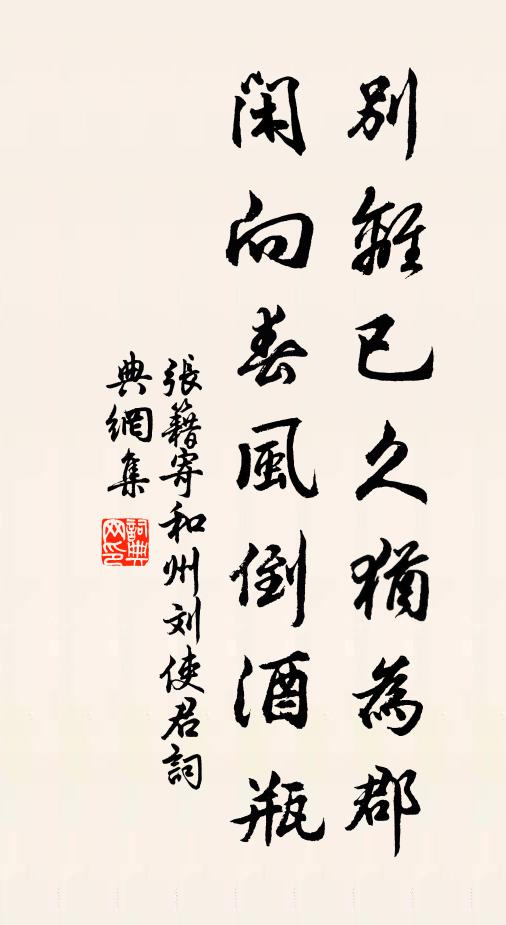 別離已久猶為郡
閑向春風倒酒瓶
張籍寄和州刘使君詞
典網集
詞典网印